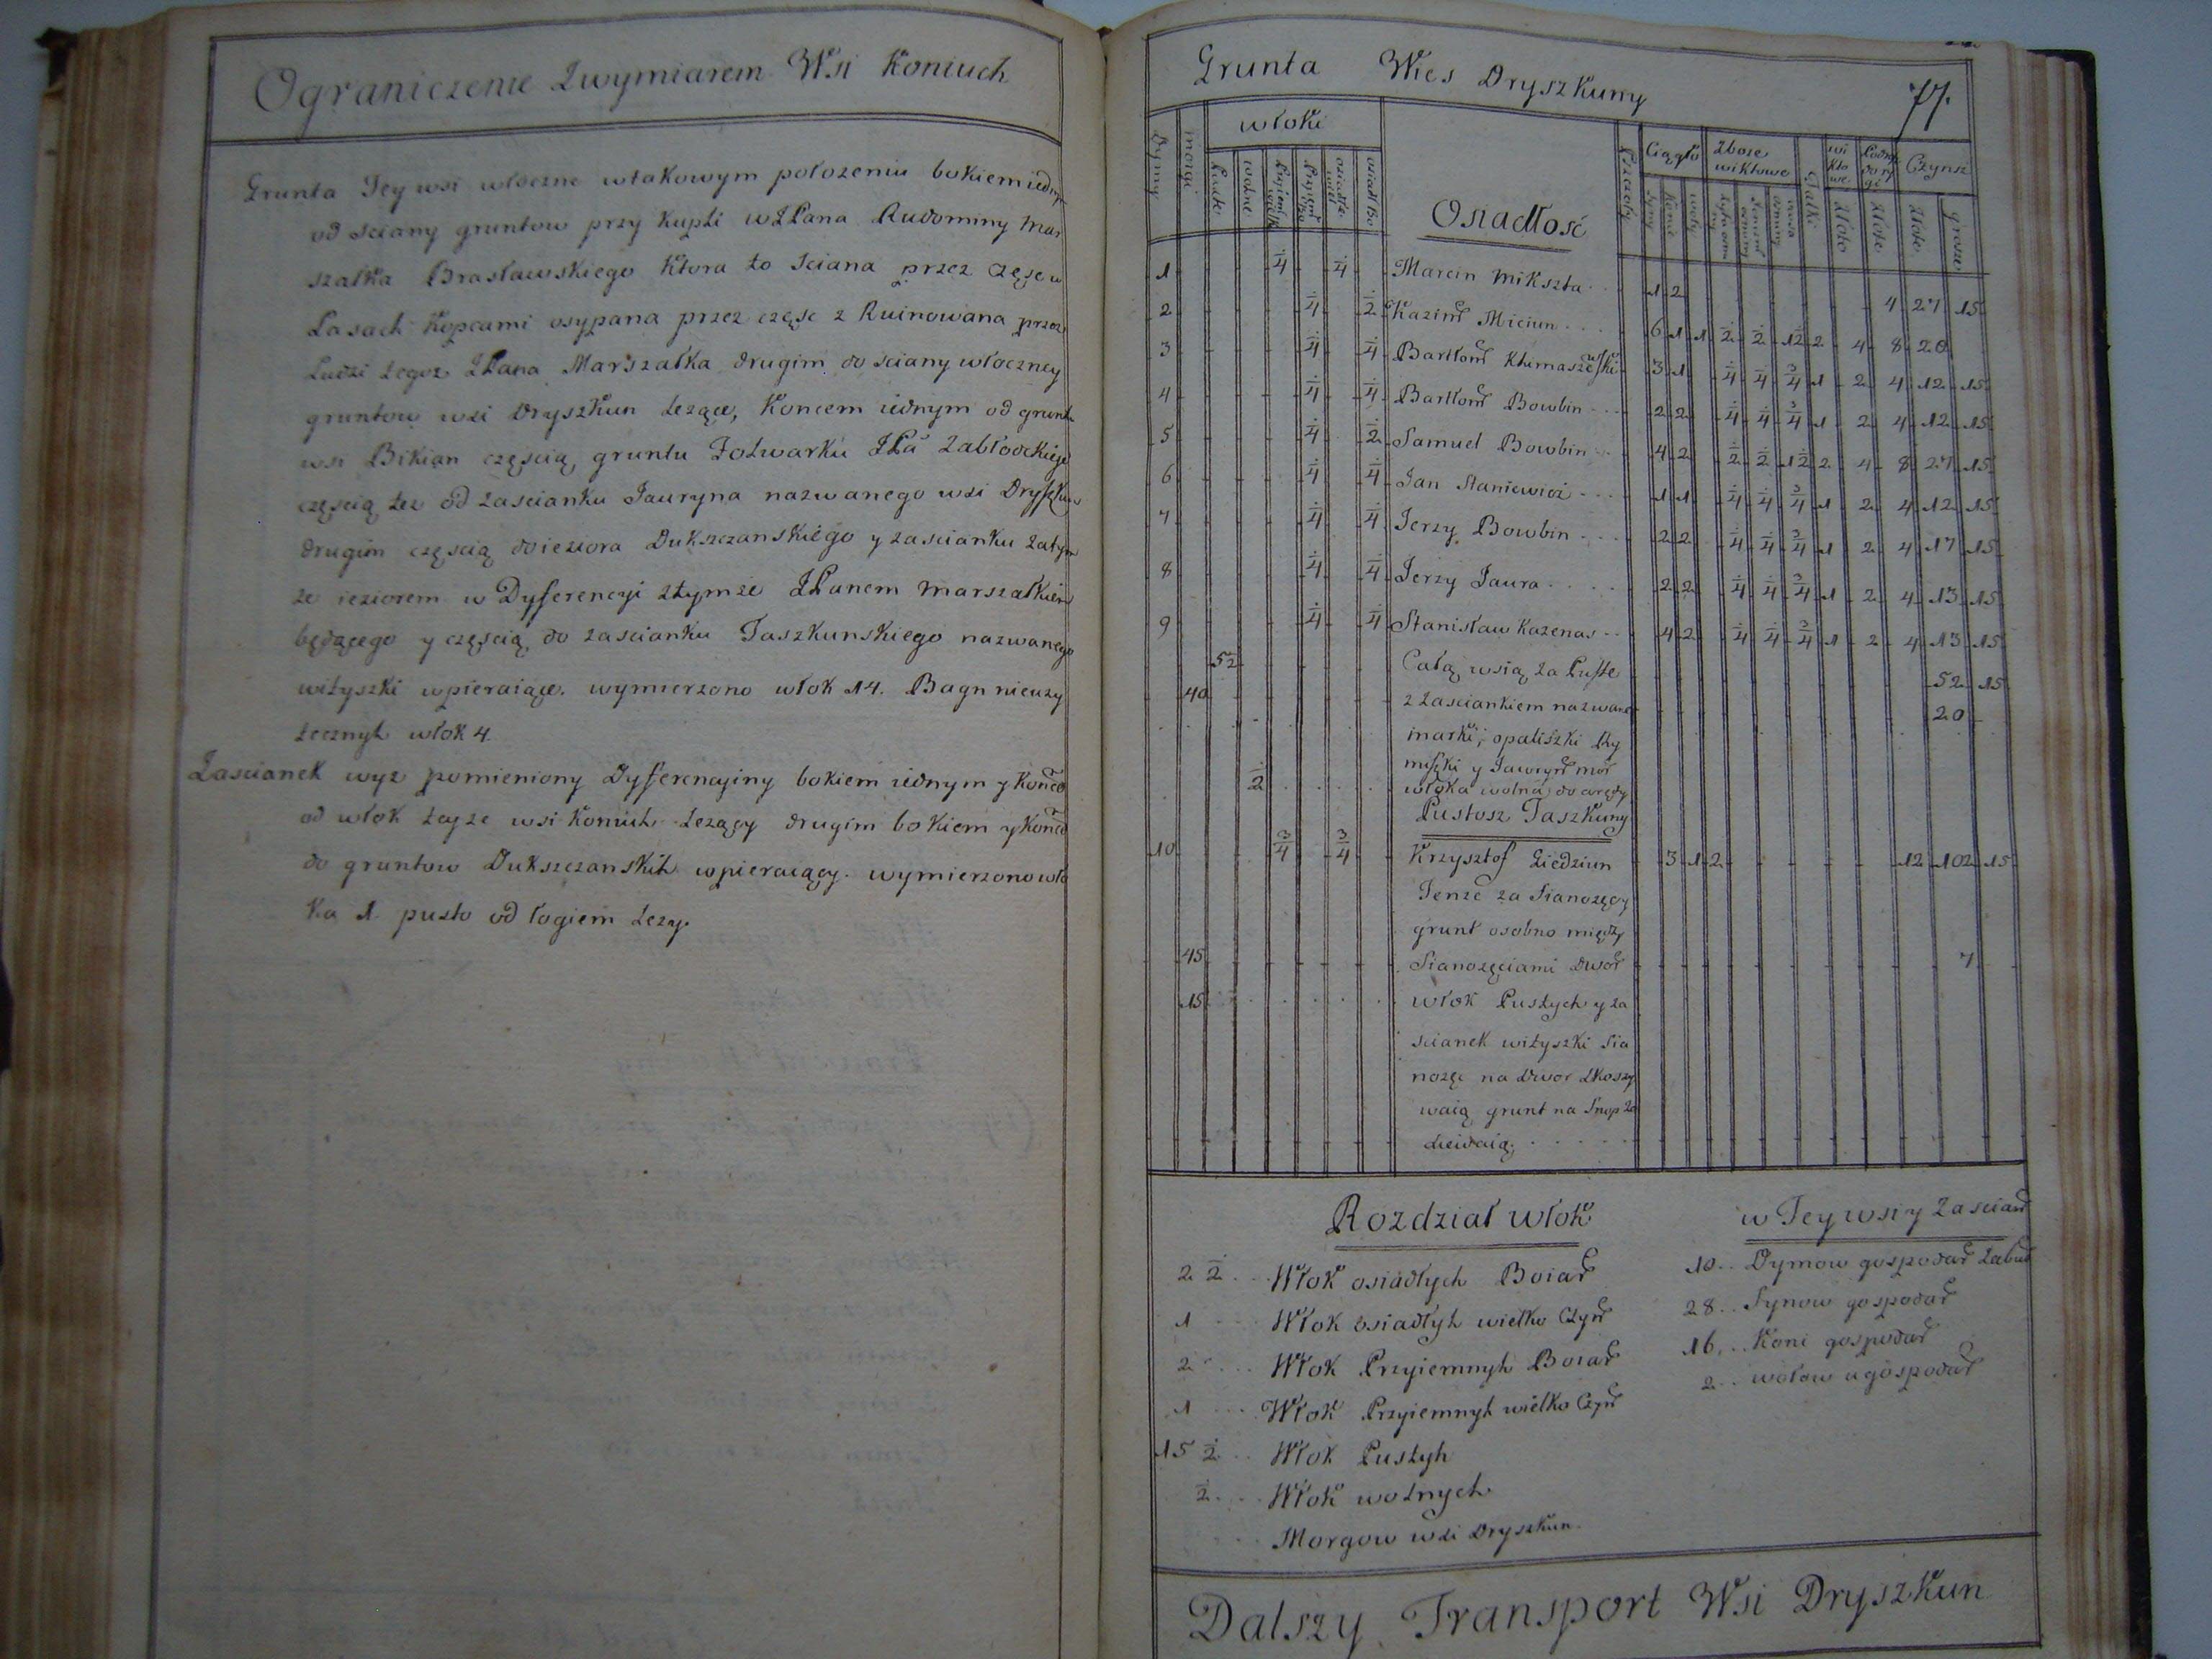 Ograniczenie Zwymiarem Wsi Koniuch
Grunta Tey wsi włoczne wtakowym położeniu bokiem iednym
od sciany gruntow przy Kupli WJPana Rudominy Mar
szałka Brasławskiego Ktora to sciana przez częsc w
Lasach Kopcami osypana przez częsc zRuinowana przez
Ludzi tegoz JPana Marszałka drugim do sciany włoczney
gruntow wsi Dryszkun lezące, Koncem iednym od grunt
wsi Bikian częscią gruntu Folwarku JPa Zabłockiego
częscią tez od zascianku Jauryna nazwanego wsi Dryszkun
drugim częscią do ieziora Dukszczanskiego y zascianku zatym
ze ieziorem w Dyferencyi ztymze JPanem Marszałkiem
będącego y częscią do zascianku Taszkunskiego nazwanego
wityszki wpieraiące. wymierzono włok 14. Bagn nieuzy
tecznyh włok 4.
Zascianek wyz pomieniony Dyferencyiny bokiem iednym y Konco
od włok teyze wsi Koniuch Lezący drugim bokiem y Konco
do gruntow Dukszczanskih wpieraiący. wymierzono wło
ka 1. pusto odłogiem Lezy.
Grunta Wies Dryszkuny 77.
Dymy morgi włoki Osiadłosć Ciągło Zboze wikłowe Gąski wi kło we Podw do ry gi Czynsz
puste wolne osiadłe synow konie woły złote złote złote grosze
1 1/4 1/4 Marcin Mikszta 1 2 4 27 15
2 1/4 1/2 Kazimr Miciun 6 1 1 1/2 1/2 1 1/2 2 4 8 20
3 1/4 1/4 Bartłom Klimaszewski 3 1 1/4 1/4 3/4 1 2 4 12 15
4 1/4 1/4 Bartłom Bowbin 2 2 1/4 1/4 3/4 1 2 4 12 15
5 1/4 1/2 Samuel Bowbin 4 2 1/2 1/2 1 1/2 2 4 8 27 15
6 1/4 1/4 Jan Staniewicz 1 1 1/4 1/4 3/4 1 2 4 12 15
7 1/4 1/4 Jerzy Bowbin 2 2 1/4 1/4 3/4 1 2 4 17 15
8 1/4 1/4 Jerzy Jaura 2 2 1/4 1/4 3/4 1 2 4 13 15
9 1/4 1/4 Stanisław Kazenas 4 2 1/4 1/4 3/4 1 2 4 13 15
5 1/2 Całą wsią za Puste 52 15
40 z Zasciankiem nazwane 20
marki, opaliszki
miszki y Jawryn mor
1/2 włoka wolna do
Pustosz Taszkuny
10 3/4 3/4 Krzysztof Liedziun 3 1 2 12 102 15
Tenze za Sianozęcy
grunt osobno między
45 Sianozęciami dwor 7
15 włok Pustych y za
scianek wityszki Sia
nozęc na dwor zkoszy
waią grunt na Snop za
sieiwaią
Rozdział włok
2 1/2 Włok osiadłych Boiar
1 Włok osiadłyh wielko Czyn
2 Włok Przyiemnyh Boiar
1 Włok Przyiemnyh wielko Czyn
15 1/2 Włok Pustyh
1/2 Włok wolnych
Morgow wsi Dryszkun
w Tey wsi y Zascian
10 Dymow gospodar Zabud
28 Synow gospodar
16 Koni gospodar
2 wołow u gospodar
Dalszy Transport Wsi Dryszkun